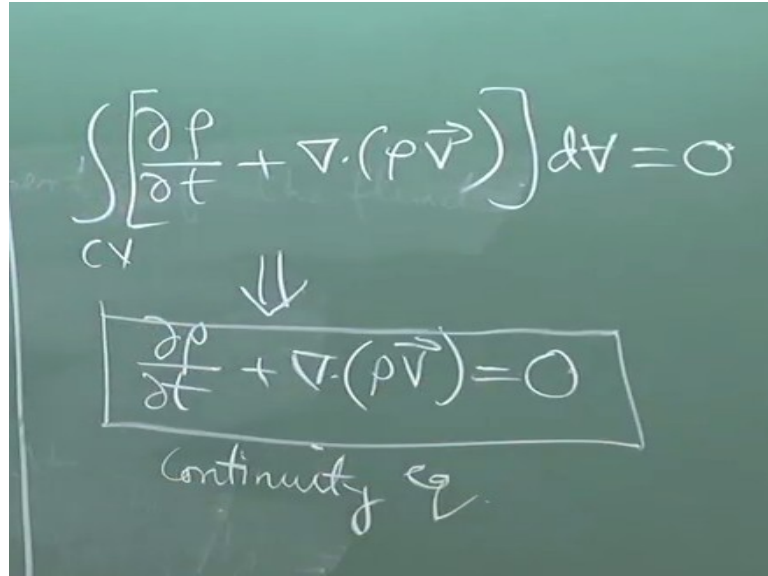 ∫_CV [∂ρ/∂t + ∇·(ρV⃗)] dV = 0
⇓
∂ρ/∂t + ∇·(ρV⃗) = 0
Continuity eq.